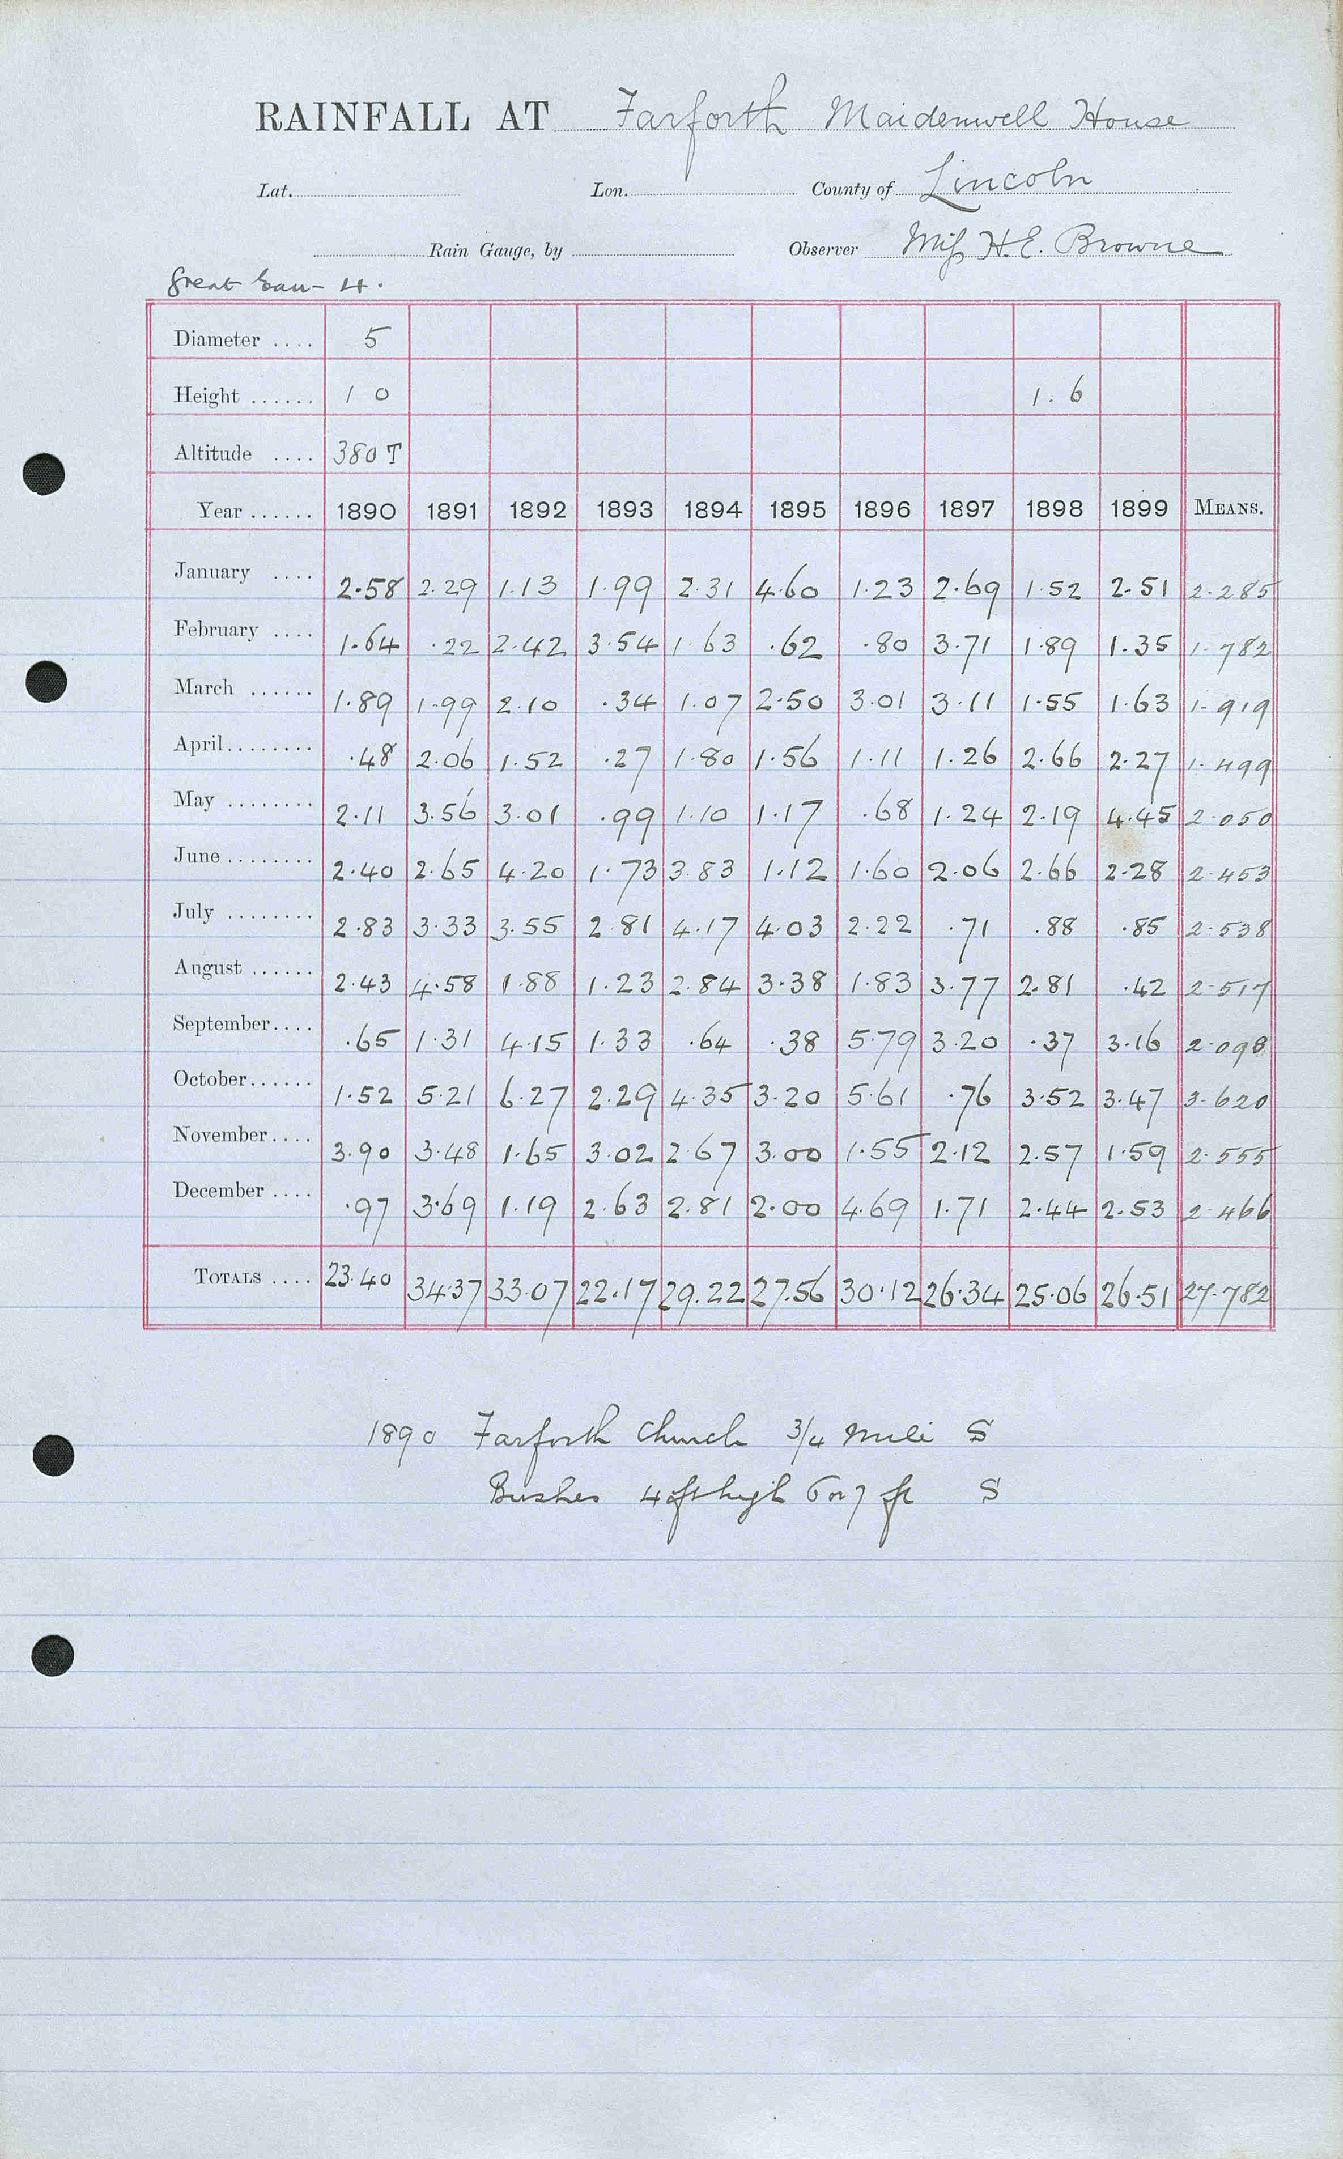 RAINFALL AT Farforth Maidenwell House
Lat. Lon. County of Lincoln
Rain Gauge, by Observer Miss H.E. Browne
Great Eau - 4.
Diameter .... 5
Height ...... 1 0 1.6
Altitude .... 380 T
Year ...... 1890 1891 1892 1893 1894 1895 1896 1897 1898 1899 MEANS.
January .... 2.58 2.29 1.13 1.99 2.31 4.60 1.23 2.69 1.52 2.51 2.285
February .... 1.64 .22 2.42 3.54 1.63 .62 .80 3.71 1.89 1.35 1.782
March ...... 1.89 1.99 2.10 .34 1.07 2.50 3.01 3.11 1.55 1.63 1.919
April........ .48 2.06 1.52 .27 1.80 1.56 1.11 1.26 2.66 2.27 1.499
May ........ 2.11 3.56 3.01 .99 1.10 1.17 .68 1.24 2.19 4.45 2.050
June ........ 2.40 2.65 4.20 1.73 3.83 1.12 1.60 2.06 2.66 2.28 2.453
July ........ 2.83 3.33 3.55 2.81 4.17 4.03 2.22 .71 .88 .85 2.538
August ...... 2.43 4.58 1.88 1.23 2.84 3.38 1.83 3.77 2.81 .42 2.517
September.... .65 1.31 4.15 1.33 .64 .38 5.79 3.20 .37 3.16 2.098
October...... 1.52 5.21 6.27 2.29 4.35 3.20 5.61 .76 3.52 3.47 3.620
November.... 3.90 3.48 1.65 3.02 2.67 3.00 1.55 2.12 2.57 1.59 2.555
December .... .97 3.69 1.19 2.63 2.81 2.00 4.69 1.71 2.44 2.53 2.466
TOTALS .... 23.40 34.37 33.07 22.17 29.22 27.56 30.12 26.34 25.06 26.51 27.782
1890 Farforth Church 3/4 mile S
Bushes 4 ft high 6 or 7 ft S